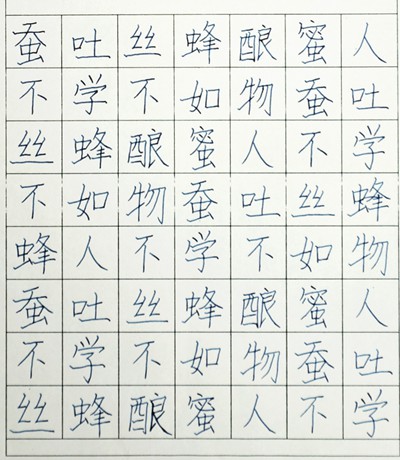 蚕吐丝蜂酿蜜人
不学不如物蚕吐
丝蜂酿蜜人不学
不如物蚕吐丝蜂
蜂人不学不如物
蚕吐丝蜂酿蜜人
不学不如物蚕吐
丝蜂酿蜜人不学